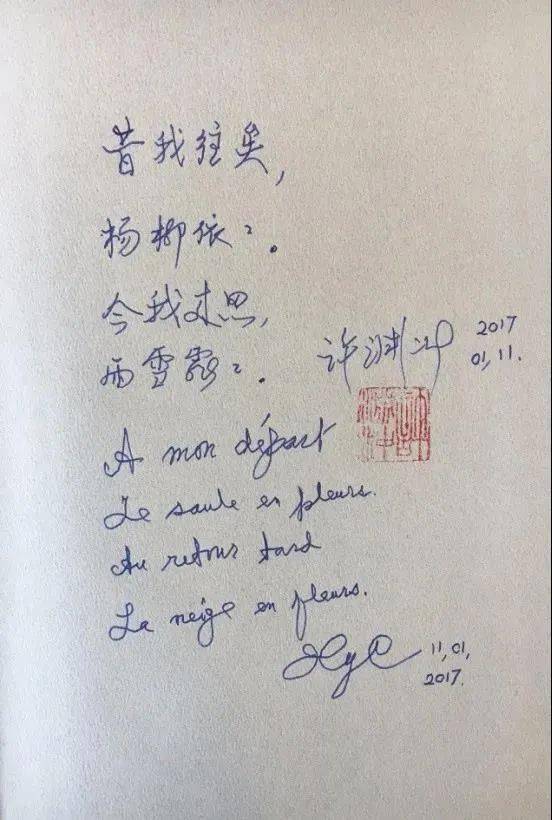 昔我往矣，
杨柳依〻.
今我来思，
雨雪霏〻.
许渊冲
2017
01,11.
A mon départ
Le saule en pleurs.
Au retour tard
La neige en fleurs.
XYC
11,01,
2017.